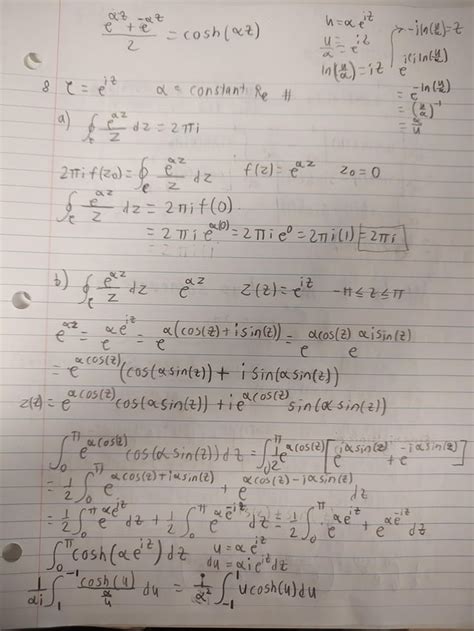 (e^{αz} + e^{-αz})/2 = cosh(αz)
u = αe^{iz}
u/α = e^{iz}
ln(u/α) = iz
-i ln(u/α) = z
e^{i(i ln(u/α))}
= e^{-ln(u/α)}
= (u/α)^{-1}
= α/u
8 C = e^{iz} α = constant Re #
a) ∮_C e^{αz}/z dz = 2πi
2πi f(z₀) = ∮_C e^{αz}/z dz f(z) = e^{αz} z₀ = 0
∮_C e^{αz}/z dz = 2πi f(0)
= 2πi e^{α(0)} = 2πi e^0 = 2πi(1) = 2πi
b) ∮_C e^{αz}/z dz e^{αz} z(z) = e^{iz} -π ≤ z ≤ π
e^{αz} = e^{αe^{iz}} = e^{α(cos(z) + i sin(z))} = e^{αcos(z)} e^{αi sin(z)}
= e^{αcos(z)} (cos(αsin(z)) + i sin(αsin(z))
z(z) = e^{αcos(z)} cos(αsin(z)) + ie^{αcos(z)} sin(αsin(z))
∫_0^π e^{αcos(z)} cos(αsin(z)) dz = ∫_0^π 1/2 e^{αcos(z)} [e^{iαsin(z)} + e^{-iαsin(z)}]
= 1/2 ∫_0^π e^{αcos(z) + iαsin(z)} + e^{αcos(z) - iαsin(z)} dz
= 1/2 ∫_0^π e^{αe^{iz}} dz + 1/2 ∫_0^π e^{αe^{-iz}} dz = 1/2 ∫_0^π e^{αe^{iz}} + e^{αe^{-iz}} dz
∫_0^π cosh(αe^{iz}) dz u = αe^{iz}
du = αie^{iz} dz
1/(αi) ∫_1^{-1} cosh(u)/(α/u) du = i/α² ∫_{-1}^1 u cosh(u) du